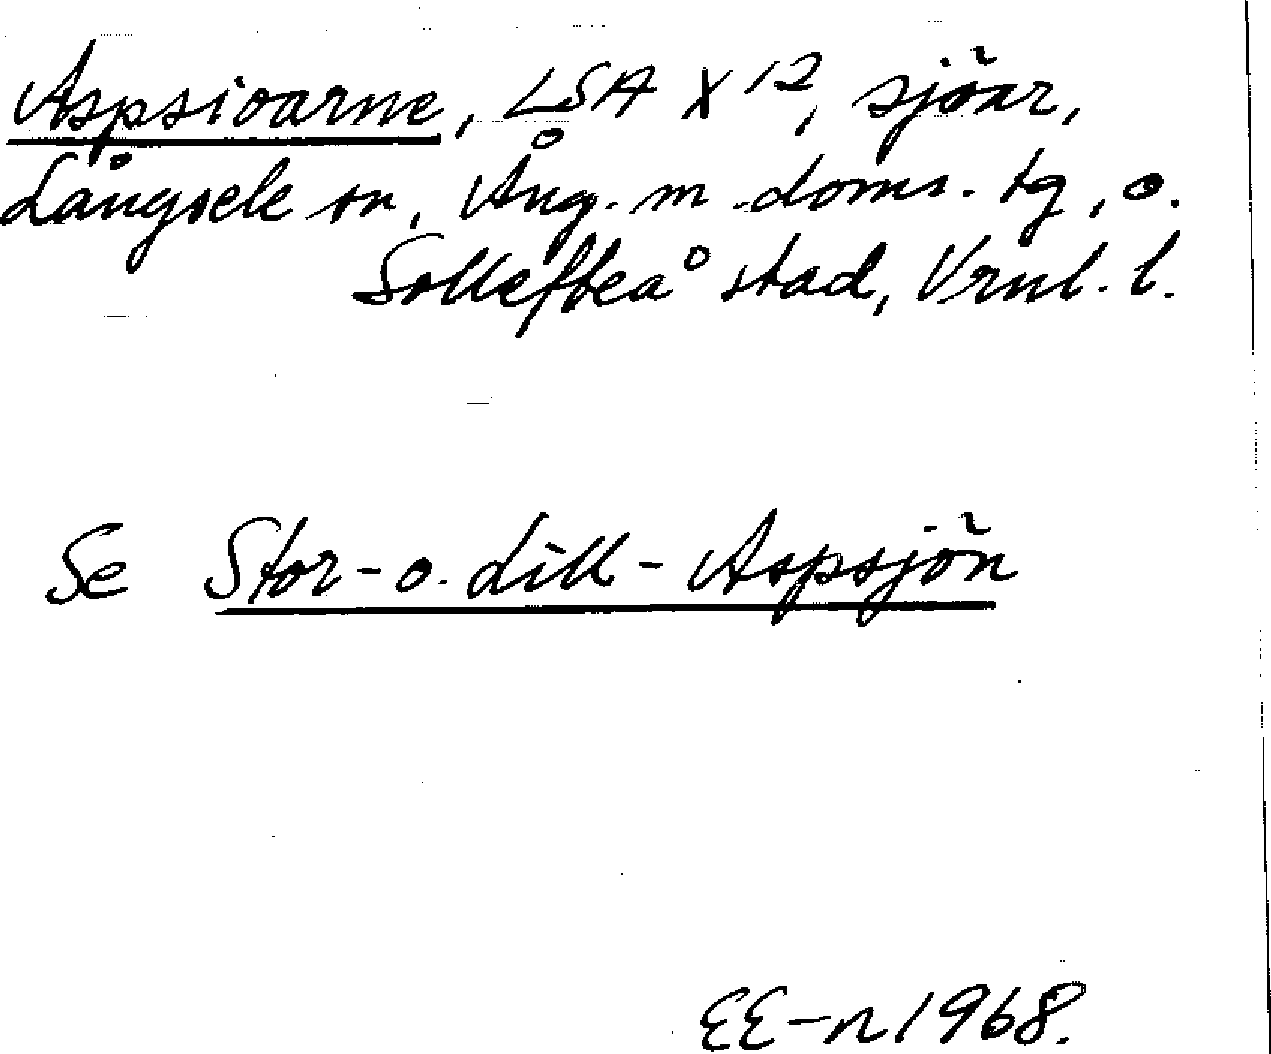 Aspsioarne, LSA X 12, sjöar,
Långsele sn, Ång. m. doms. tg, o.
Sollefteå stad, Vrnl. l.
Se Stor- o. Lill-Aspsjön
EE-n 1968.